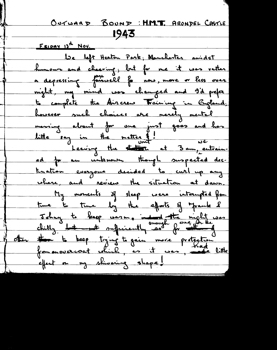 OUTWARD BOUND: H.M.T. ARUNDEL CASTLE
1943
FRIDAY 12th Nov.
We left Heaton Park, Manchester amidst
humours and cheering, but for me it was rather
a depressing farewell for now, more or less over
night, my mind was changed and I'd prefer
to complete the Aircrew Training in England,
however such choices are merely mental
moving about for one just goes and has
little say in the matter!
Leaving the unit at 3 am, we entrain-
ed for an unknown though suspected des-
tination everyone decided to curl up any
where, and review the situation at dawn.
My moments of sleep were interrupted from
time to time by the efforts of Frank &
Johny to keep warm, night was
chilly enough sufficiently so for
to keep trying to gain more protection
from an overcoat which, as it was, had little
effect on my shivering shape!